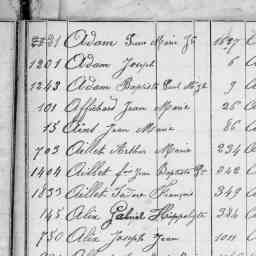 31 Adam Jean Marie 1687
1201 Adam Joseph 6
1243 Adam Baptiste Paul 9
101 Affichard Jean Marie 26
15 Ains Jean Marie 86
703 Aillet Arthur Marie 234
1404 Aillet Jean Baptiste 242
1833 Aillet Isidore François 349
145 Alix Gabriel Hippolyte 384
750 Alix Joseph Jean 1011